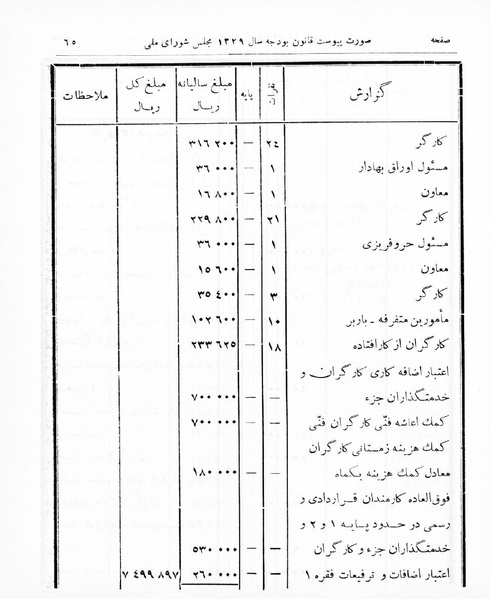 صفحه صورت پیوست قانون بودجه سال ۱۳۲۹ مجلس شورای ملی ۶۵
گزارش نفرات پایه مبلغ سالیانه ریال مبلغ کل ریال ملاحظات
کارگر ۲٤ — ۳۱۶ ۲۰۰
مسئول اوراق بهادار ۱ — ۳۶ ۰۰۰
معاون ۱ — ۱۶ ۸۰۰
کارگر ۲۱ — ۲۲۹ ۸۰۰
مسئول حروفریزی ۱ — ۳۶ ۰۰۰
معاون ۱ — ۱۵ ۶۰۰
کارگر ۳ — ۳۵ ٤۰۰
مأمورین متفرقه ـ باربر ۱۰ — ۱۰۲ ۶۰۰
کارگران از کارافتاده ۱۸ — ۲۳۳ ۶۲۵
اعتبار اضافه کاری کارگران و
خدمتگذاران جزء — — ۷۰۰ ۰۰۰
کمك اعاشه فنّی کارگران فنّی — — ۷۰۰ ۰۰۰
کمك هزینه زمستانی کارگران
معادل کمك هزینه یکماه — — ۱۸۰ ۰۰۰
فوق‌العاده کارمندان قراردادی و
رسمی در حدود پـایـه ۱ و ۲ و
خدمتگذاران جزء و کارگران — — ۵۳۰ ۰۰۰
اعتبار اضافات و ترفیعات فقره ۱ — — ۲۶۰ ۰۰۰ ۷ ٤۹۹ ۸۹۷